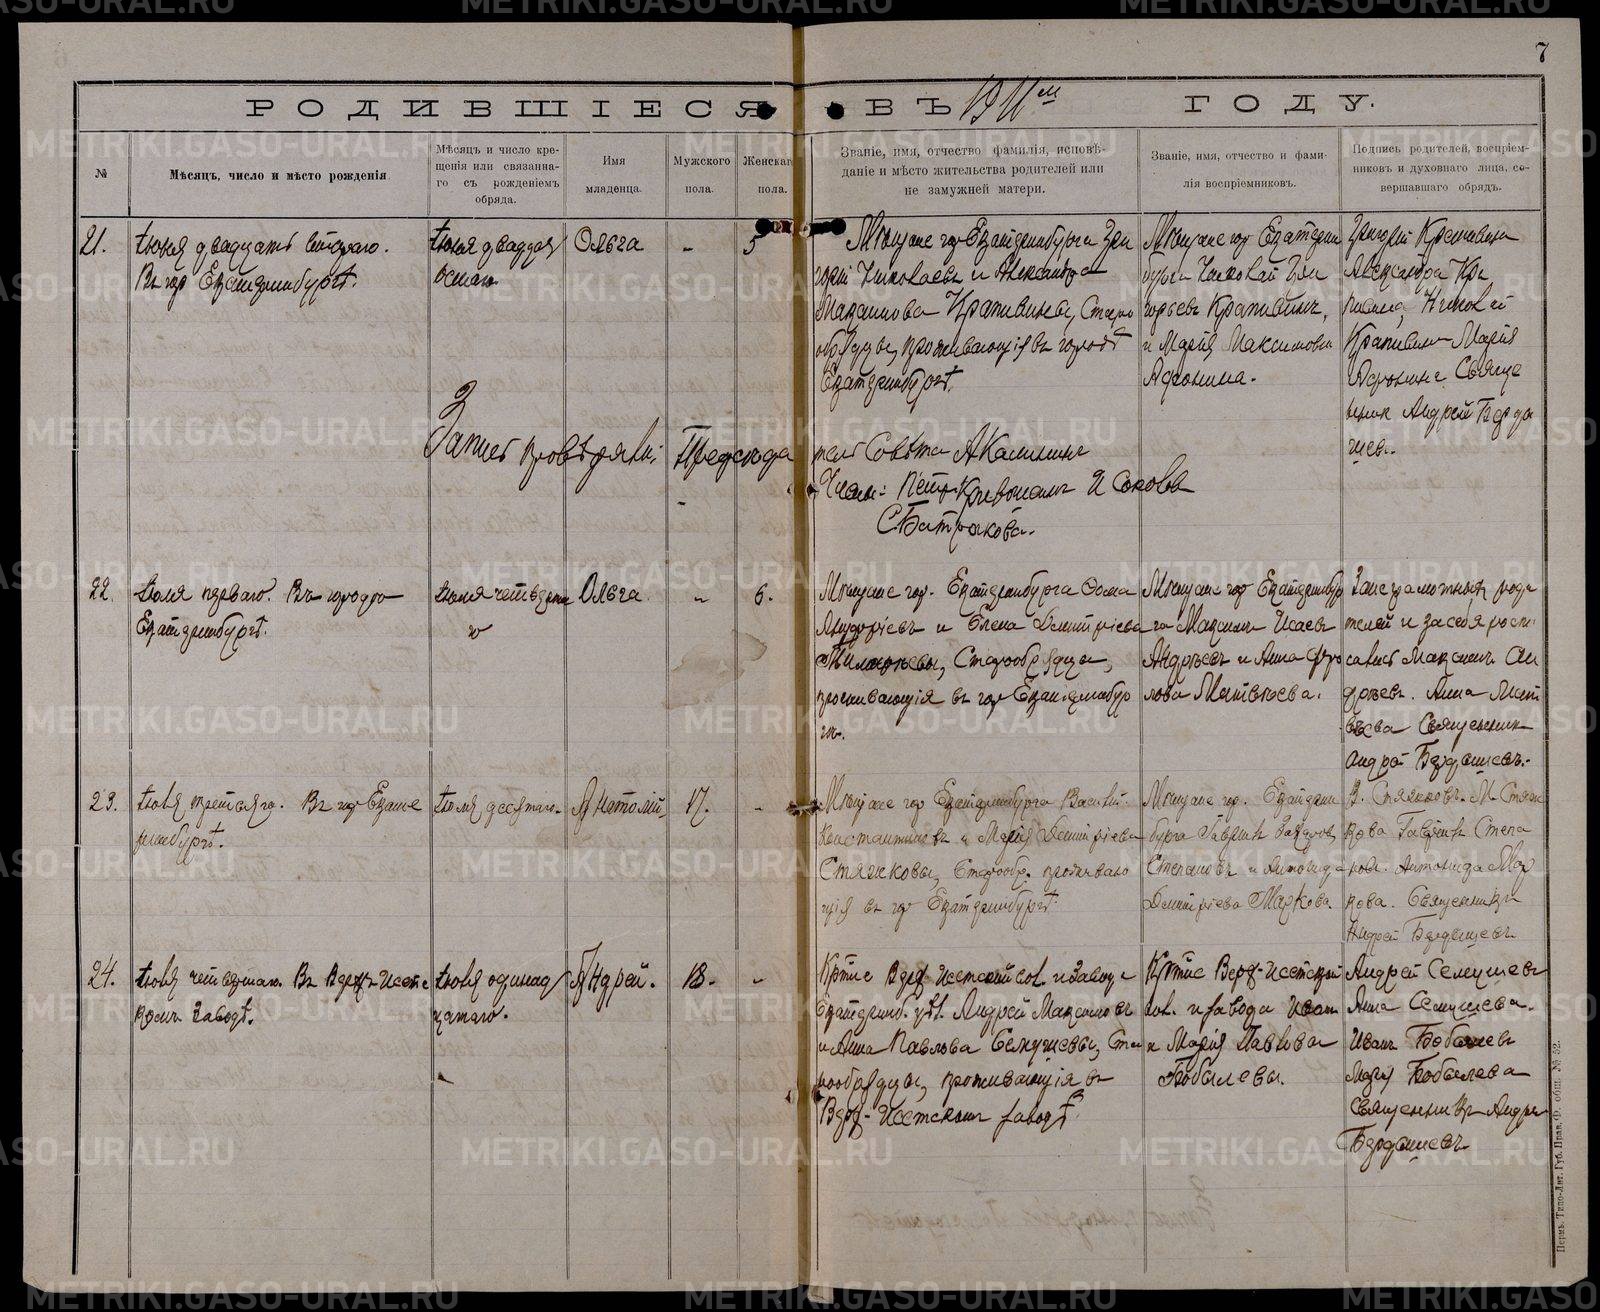 7
РОДИВШІЕСЯ ВЪ 1911ᵐ ГОДУ.
№
Мѣсяцъ, число и мѣсто рожденія.
Мѣсяцъ и число кре-
щенія или связанна-
го съ рожденіемъ
обряда.
Имя
младенца.
Мужского
пола.
Женскаго
пола.
Званіе, имя, отчество фамилія, исповѣ-
даніе и мѣсто жительства родителей или
не замужней матери.
Званіе, имя, отчество и фами-
лія воспріемниковъ.
Подпись родителей, воспріем-
никовъ и духовнаго лица, со-
вершавшаго обрядъ.
21.
Іюня двадцать втораго.
Въ гор Екатеринбургѣ.
Іюня двадцат
Ольга
-
5
Мѣщане гор Екатеринбурга Гри
горій Николаевъ и Александра
Максимова Крапивины, Старо
обрядцы, проживающія въ городѣ
Екатеринбургѣ.
Мѣщане гор Екатерин
бурга Николай Гри
горьевъ Крапивинъ,
и Марія Максимовна
Афонина.
Григорій Крапивинъ
Александра Кра
пивина, Николай
Крапивинъ Марія
Афонина Свяще
нник Андрей Берды
шев.
Запись провѣряли: Председатель Совѣта А Калининъ
Члены: Петр
С. Батраков.
22.
Іюля перваго. Въ городѣ
Екатеринбургѣ.
Ольга
-
6.
Мѣщане гор. Екатеринбурга Фома
и Елена Дмитріева
Старообрядцы,
проживающія въ гор Екатеринбур
гѣ.
Мѣщане гор Екатеринбур
га Максимъ Исаевъ
Андреевъ и Анна Фро
лова Матвѣева.
За неграмотных роди
телей и за себя роспи
сались Максимъ Ан
дреевъ. Анна Мат
вѣева Священник
Андрей Бердышевъ.
23.
Іюля третьяго. Въ гор Екате
ринбургѣ.
Іюля десятаго.
Анатолій
17.
-
Мѣщане гор Екатеринбурга Василій
Константиновъ и Марія Дмитріева
Стяжковы, Старообр. проживаю
щія въ гор Екатеринбургѣ.
Мѣщане гор. Екатерин
бурга Гавріил
Степановъ и Антонида
Дмитріева Маркова.
В. Стяжковъ. М. Стяж
кова Гавріил Степа
новъ. Антонида Мар
кова. Священникъ
Андрей Бердышевъ
24.
Іюля четвертаго. Въ Верхъ-Исетс
комъ Заводѣ.
Іюля одинад
цатаго.
Андрей.
18.
-
Кр-не Верх Исетской вол. и завода
Екатеринб. уѣ. Андрей Максимовъ
и Анна Павлова Семушевы, Ста
рообрядцы, проживающія въ
Верх-Исетскомъ заводѣ.
Кр-не Верх-Исетской
вол. и завода Иван
и Марія Павлова
Бобылевы.
Андрей Семушевъ
Анна Семушева.
Иванъ Бобылевъ
Марія Бобылева
Священникъ Андрей
Бердышевъ
Пермь. Типо-Лит. Губ. Прав. Ф. общ. № 52.
METRIKI.GASO-URAL.RU